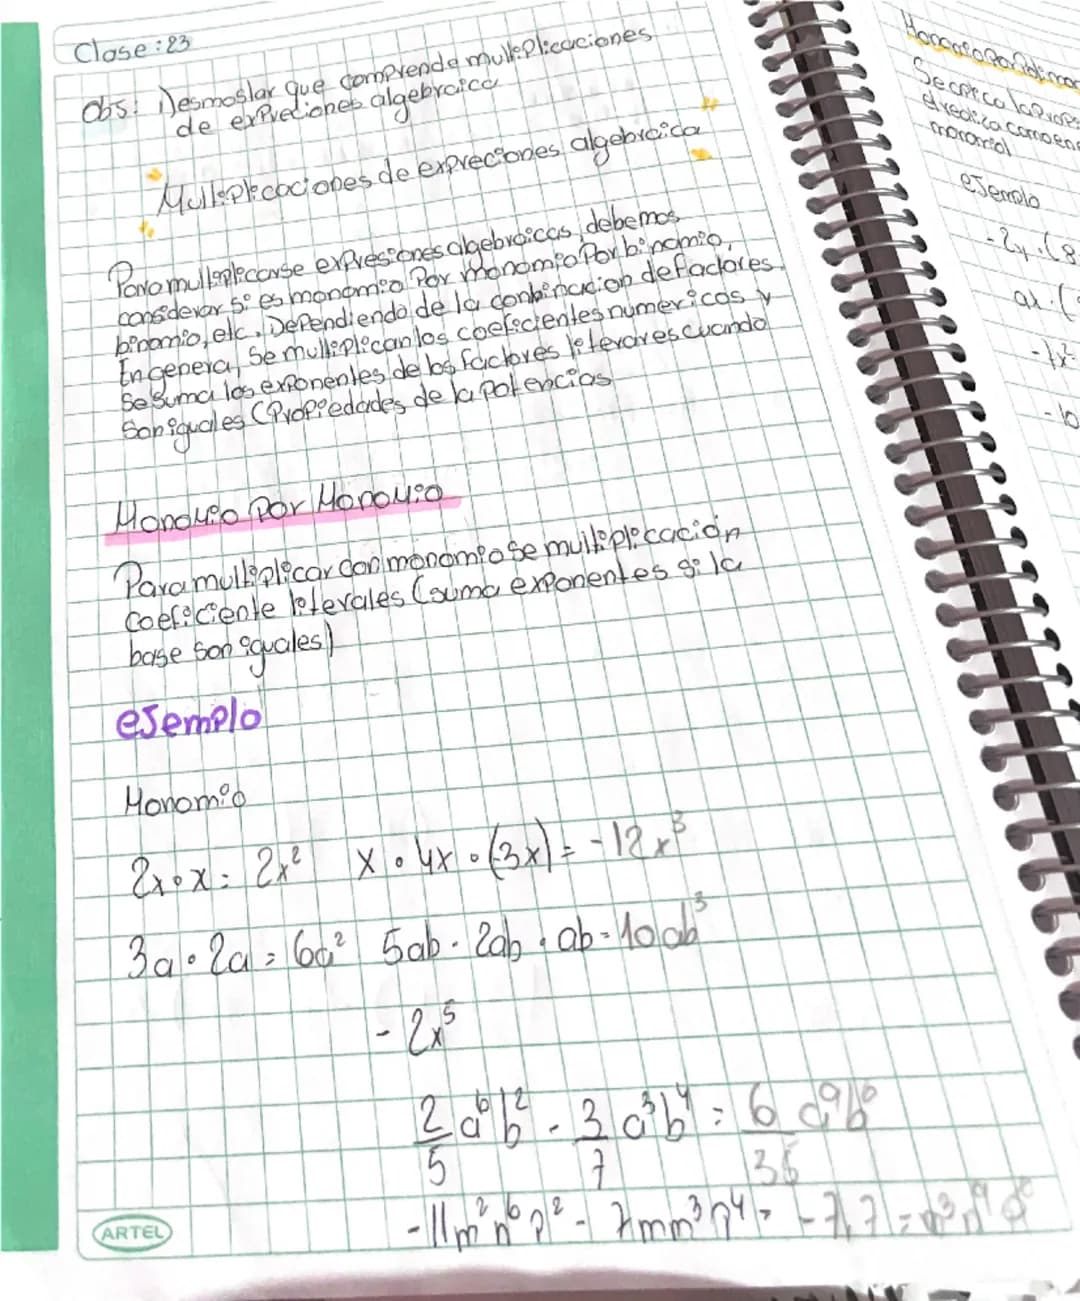 Clase: 23
Obs: Desmostar que comprende multiplicaciones
de expreciones algebraica
Multiplicaciones de expreciones algebraica
Para multiplicarse expresiones algebraicas, debemos
considerar si es monomio Por monomio Por binomio,
binomio, etc. Dependiendo de la conbinacion de factores.
En genera, Se multiplican los coeficientes numericos y
se suma los exponentes de los factores literares cuando
son iguales (Propiedades de la potencias
Monomio Por Monomio
Para multiplicar con monomio se multiplicación
coeficiente literales (suma exponentes si la
base son iguales)
ejemplo
Monomio
2x • x = 2x² x • 4x • (-3x) = -12x³
3a • 2a = 6a² 5ab • 2ab • ab = 10ab³
- 2x⁵
2/5 a⁶b² · 3/7 a³b⁴ = 6/35 a⁹b⁶
-11m²n⁶p² -
ARTEL
Monomio Por
Se aplica la
distributiva como en
monomio
ejemplo
-2y · (8
ax · (
-7x²
-10